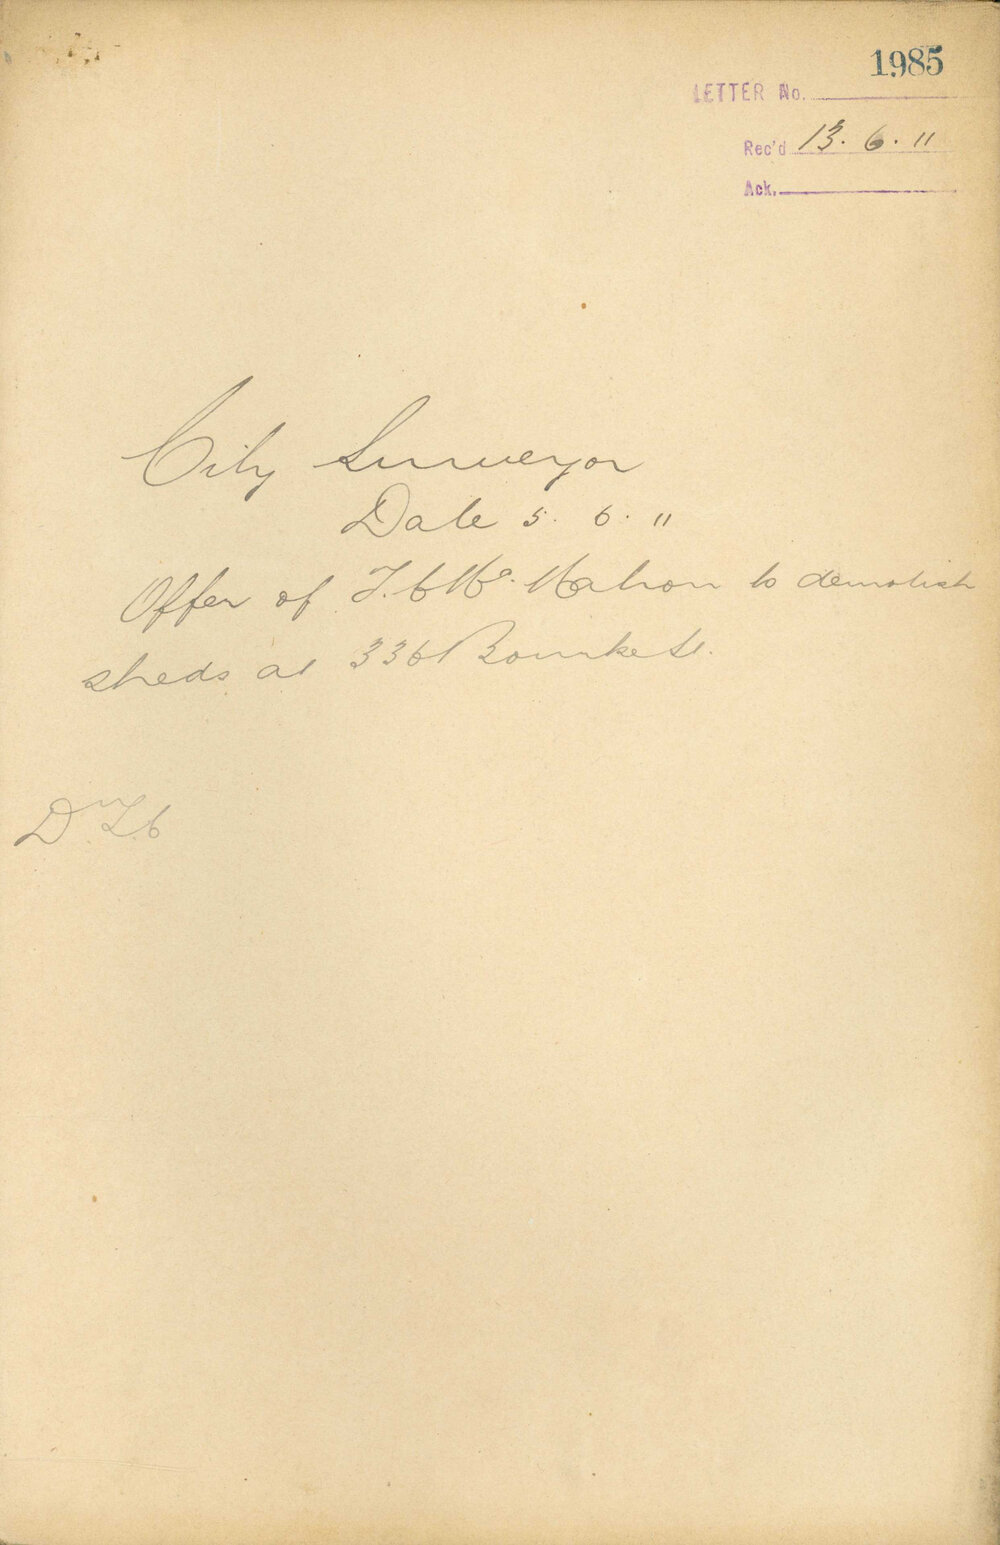 1985
LETTER No.
Rec'd 13. 6. 11
Ack.
City Surveyor
Date 5. 6. 11
Offer of Mahon to demolish
sheds at 336 Bourke St.